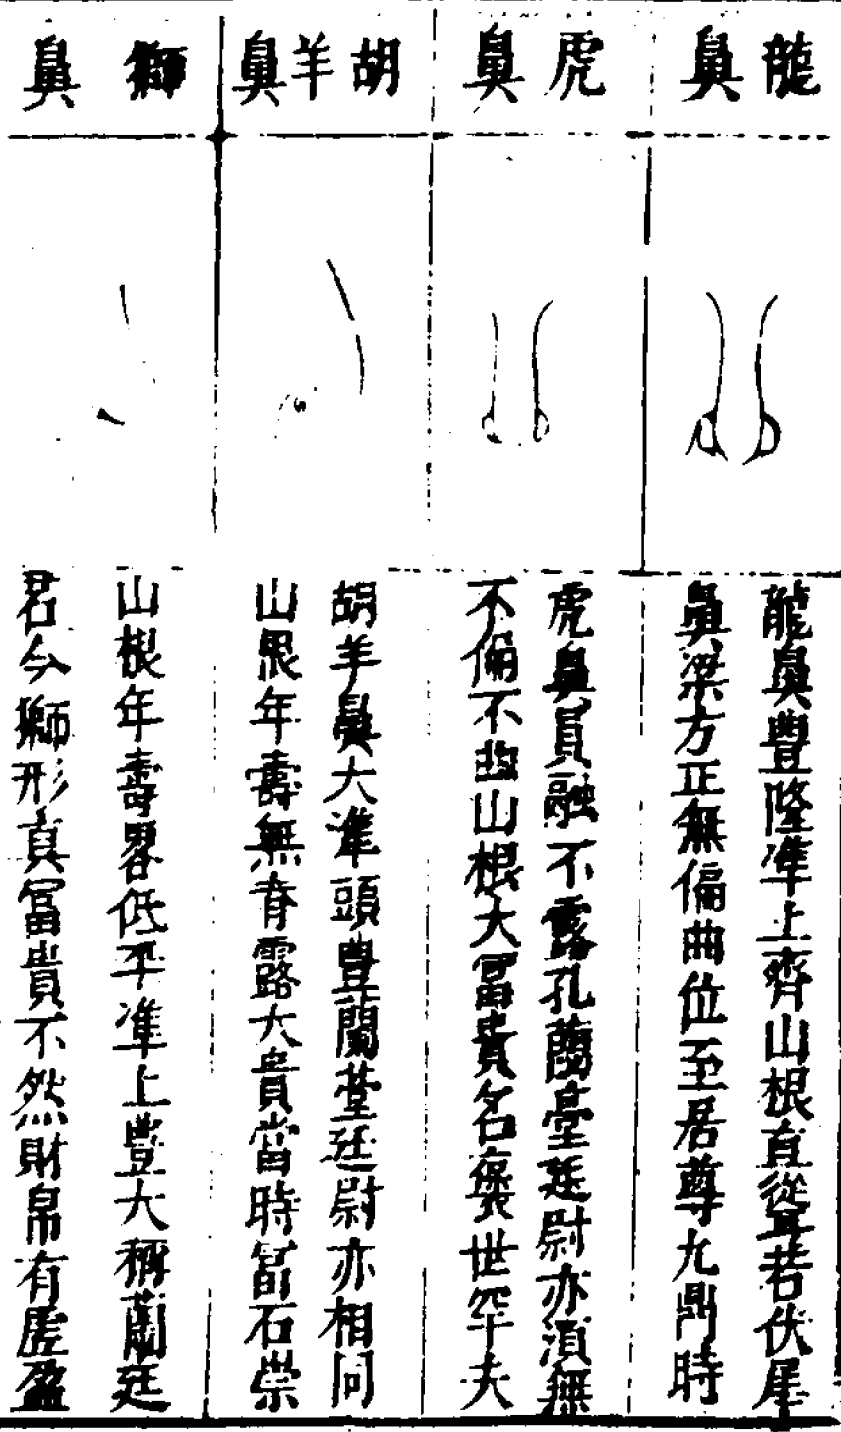 龍鼻
龍鼻豐隆準上齊山根直從聳若伏犀
鼻梁方正無偏曲位至居尊九鼎時
虎鼻
虎鼻員融不露孔蘭臺廷尉亦須無
不偏不曲山根大富貴名褒世罕夫
胡羊鼻
胡羊鼻大準頭豊蘭臺廷尉亦相同
山根年壽無脊露大貴當時富石崇
獅鼻
山根年壽畧低平準上豊大稱蘭廷
君今獅形真富貴不然財帛有虛盈